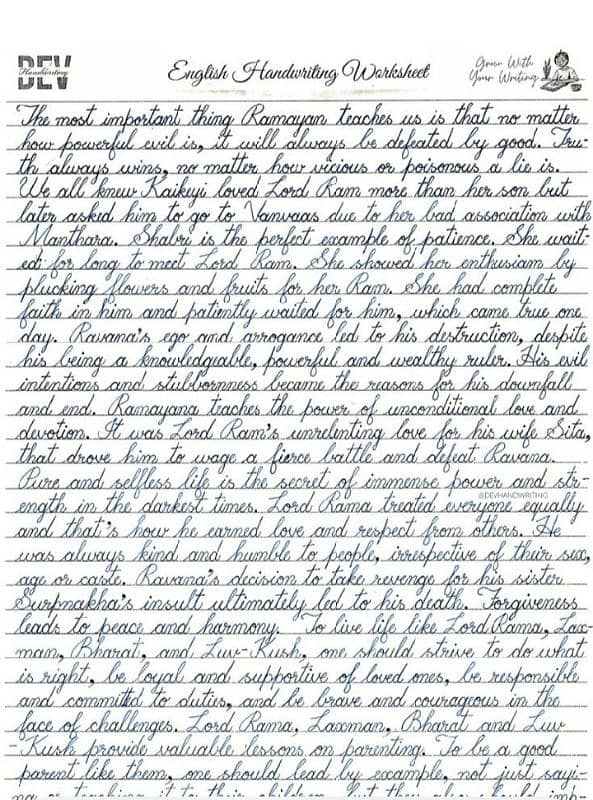 DEV
Handwriting
English Handwriting Worksheet
Grow With
Your Writing
The most important thing Ramayan teaches us is that no matter
how powerful evil is, it will always be defeated by good. Tru-
th always wins, no matter how vicious or poisonous a lie is.
We all knew Kaikeyi loved Lord Ram more than her son but
later asked him to go to Vanvaas due to her bad association with
Manthara. Shabri is the perfect example of patience. She wait-
ed for long to meet Lord Ram. She showed her enthusiam by
plucking flowers and fruits for her Ram. She had complete
faith in him and patiently waited for him, which came true one
day. Ravana's ego and arrogance led to his destruction, despite
his being a knowledgable, powerful and wealthy ruler. His evil
intentions and stubbornness became the reasons for his downfall
and end. Ramayana teaches the power of unconditional love and
devotion. It was Lord Ram's unrelenting love for his wife Sita,
that drove him to wage a fierce battle and defeat Ravana.
Pure and selfless life is the secret of immense power and str-
@DEVHANDWRITING
ength in the darkest times. Lord Rama treated everyone equally
and that's how he earned love and respect from others. He
was always kind and humble to people, irrespective of their sex,
age or caste. Ravana's decision to take revenge for his sister
Surpnakha's insult ultimately led to his death. Forgiveness
leads to peace and harmony. To live life like Lord Rama, Lax-
man, Bharat, and Luv-Kush, one should strive to do what
is right, be loyal and supportive of loved ones, be responsible
and committed to duties, and be brave and courageous in the
face of challenges. Lord Rama, Laxman, Bharat and Luv
-Kush provide valuable lessons on parenting. To be a good
parent like them, one should lead by example, not just sayi-
ng or teaching it to their children